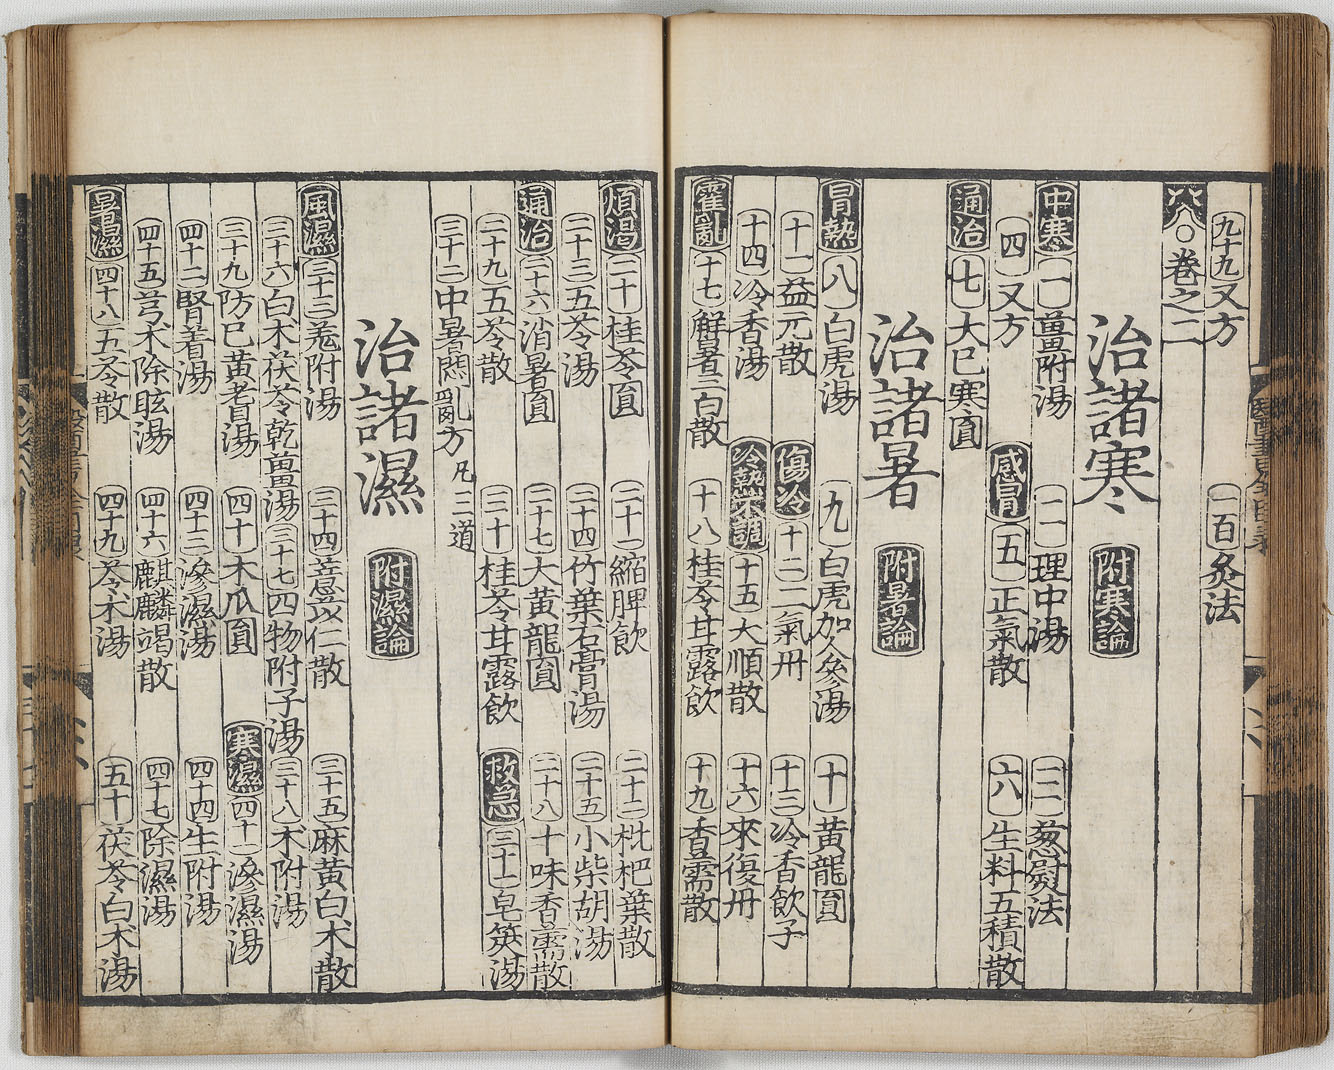 九十九又方 一百灸法
○卷之二
治諸寒 附寒論
中寒 一薑附湯 二理中湯 三葱熨法
四又方 感冒 五正氣散 六生料五積散
通治 七大巳寒圓
治諸暑 附暑論
冒熱 八白虎湯 九白虎加人參湯 十黃龍圓
十一益元散 傷冷 十二二氣丹 十三冷香飲子
十四冷香湯 冷熱不調 十五大順散 十六來復丹
霍亂 十七解暑三白散 十八桂苓甘露飲 十九香薷散
煩渴 二十桂苓圓 二十一縮脾飲 二十二枇杷葉散
二十三五苓湯 二十四竹葉石膏湯 二十五小柴胡湯
通治 二十六消暑圓 二十七大黃龍圓 二十八十味香薷散
二十九五苓散 三十桂苓甘露飲 救急 三十一皂莢湯
三十二中暑悶亂方 凡三道
治諸濕 附濕論
風濕 三十三羗附湯 三十四薏苡仁散 三十五麻黃白朮散
三十六白朮茯苓乾薑湯 三十七四物附子湯 三十八朮附湯
三十九防巳黃耆湯 四十木瓜圓 寒濕 四十一滲濕湯
四十二腎着湯 四十三滲濕湯 四十四生附湯
四十五芎朮除眩湯 四十六麒麟竭散 四十七除濕湯
暑濕 四十八五苓散 四十九苓朮湯 五十茯苓白朮湯